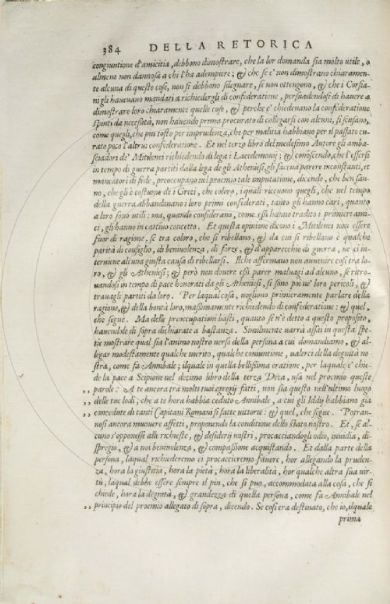 384 DELLA RETORICA
congiuntione d'amicitia, debbono dimostrare, che la lor domanda sia molto utile, o
almeno non dannosa a chi l'ha adempire; & che se è non dimostrano chiaramen-
te alcuna di queste cose, non si debbono sdegnare, se non ottengono, & che i Corfia-
ni gli haveuano mandati a richiedergli di confederatione, persuadendosi di hauere a
dimostrare loro chiaramente quelle cose, & perche e' chiedeuano la confederatione
spinti da necessità, non hauendo prima procurato di collegarsi con alcuni, si scusano,
come quegli, che piu tosto per imprudenza, che per malitia habbiano per il passato cu-
rato poco l'altrui confederatione. Et nel terzo libro del medesimo Autore gli amba-
sciadori de' Mitilenei richiedendo di lega i Lacedemoni; & conoscendo, che l'essersi
in tempo di guerra partiti dalla lega de gli Atheniesi, gli faceua parere inconstanti, et
mancatori di fede, preoccupano nel proemio tale imputatione, dicendo, che ben san-
no, che gli è costume de i Greci, che coloro, i quali riceuono quegli, che nel tempo
della guerra abbandonano i loro primi confederati, tanto gli hanno cari, quanto
a loro sono utili: ma, quando considerano, come essi hanno tradito i primieri ami-
ci, gli hanno in cattiuo concetto. Et questa opinione dicono i Mitilenei non essere
fuor di ragione, se tra coloro, che si ribellano, & da cui si ribellano è qualche
parità di consiglio, di beniuolenza, di forze, & d'apparecchio di guerra, ne ci in-
teruiene alcuna giusta causa di ribellarsi. Ilche affermano non auuenire così tra lo-
ro, & gli Atheniesi; & però non douere essi parer maluagi ad alcuno, se ritro-
uandosi in tempo di pace honorati da gli Atheniesi, si sono poi ne' loro pericoli, &
trauagli partiti da loro. Per laqual cosa, uogliono primieramente parlare della
ragione, & della bontà loro, massimamente richiedendo di confederatione; & quel,
che segue. Ma delle preoccupationi basti, quanto se n'è detto a questo proposito,
hauendole di sopra dichiarate a bastanza. Similmente narrà assai in questa spe-
tie mostrare qual sia l'animo nostro uerso della persona a cui domandiamo, & al-
legar modestamente qualche merito, qualche conuentione, ualerci della dignità no-
stra, come fa Annibale; ilquale in quella bellissima oratione, per laquale e' chie-
de la pace a Scipione nel decimo libro della terza Deca, usa nel proemio queste
parole: A te ancora tra molti tuoi egregij fatti, non sia questa nell'ultimo luogo
delle tue lodi, che a te hora habbia ceduto Annibale, a cui gli Iddij habbiano già
concedute di tanti Capitani Romani si fatte uittorie: & quel, che segue. Potran-
nosi ancora muouere affetti, proponendo la conditione dello stato nostro. Et, se al-
cuno s'opponesse alle richieste, & desiderij nostri, procacciandogli odio, inuidia, di-
spregio, & a noi beneuolenza, & compassione acquistando. Et dalla parte della
persona, laqual richiederemo ci procacceremo fauore, hor allegando la pruden-
za, hora la giustitia, hora la pietà, hora la liberalità, hor qualche altra sua uir-
tù, laqual debbe essere sempre il piu, che si puo, accommodata alla cosa, che si
chiede, hora la dignità, & grandezza di quella persona, come fa Annibale nel
principio del proemio allegato di sopra, dicendo. Se così era destinato, che io, ilquale
prima